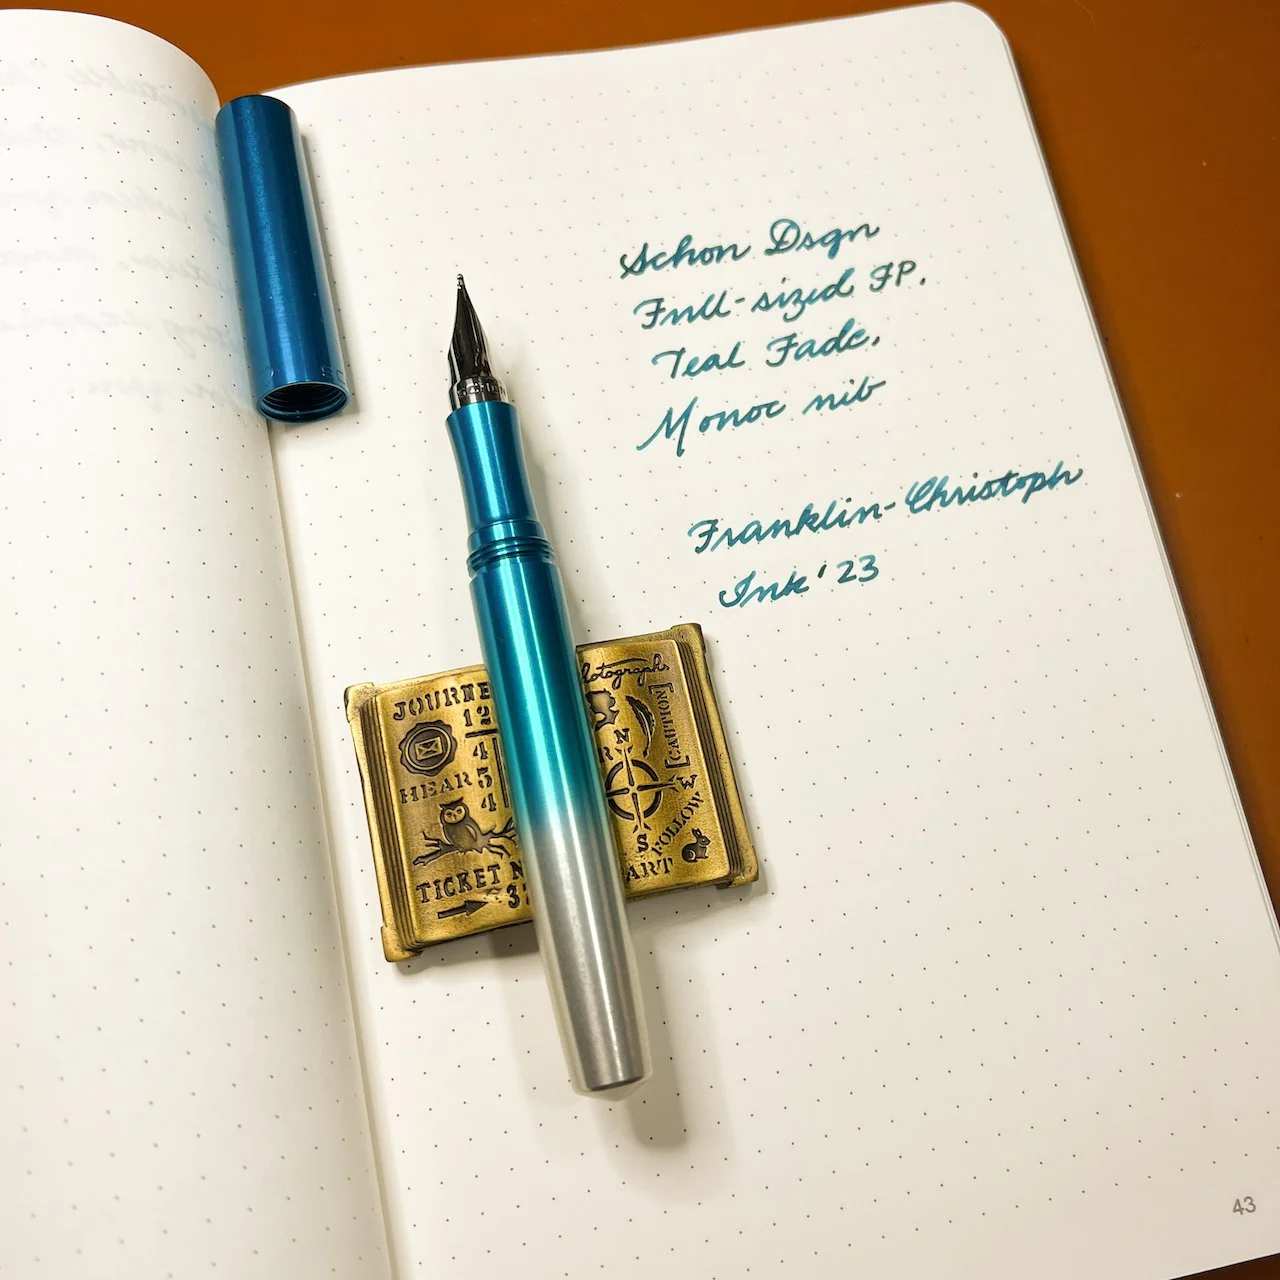 Schon Dsgn
Full-sized FP.
Teal Fade.
Monoc nib
Franklin-Christoph
Ink '23
JOURNE
12
4
HEAR 5
4
TICKET N
37
photograph
[CAUTION]
N
S
FOLLOW
ART
43